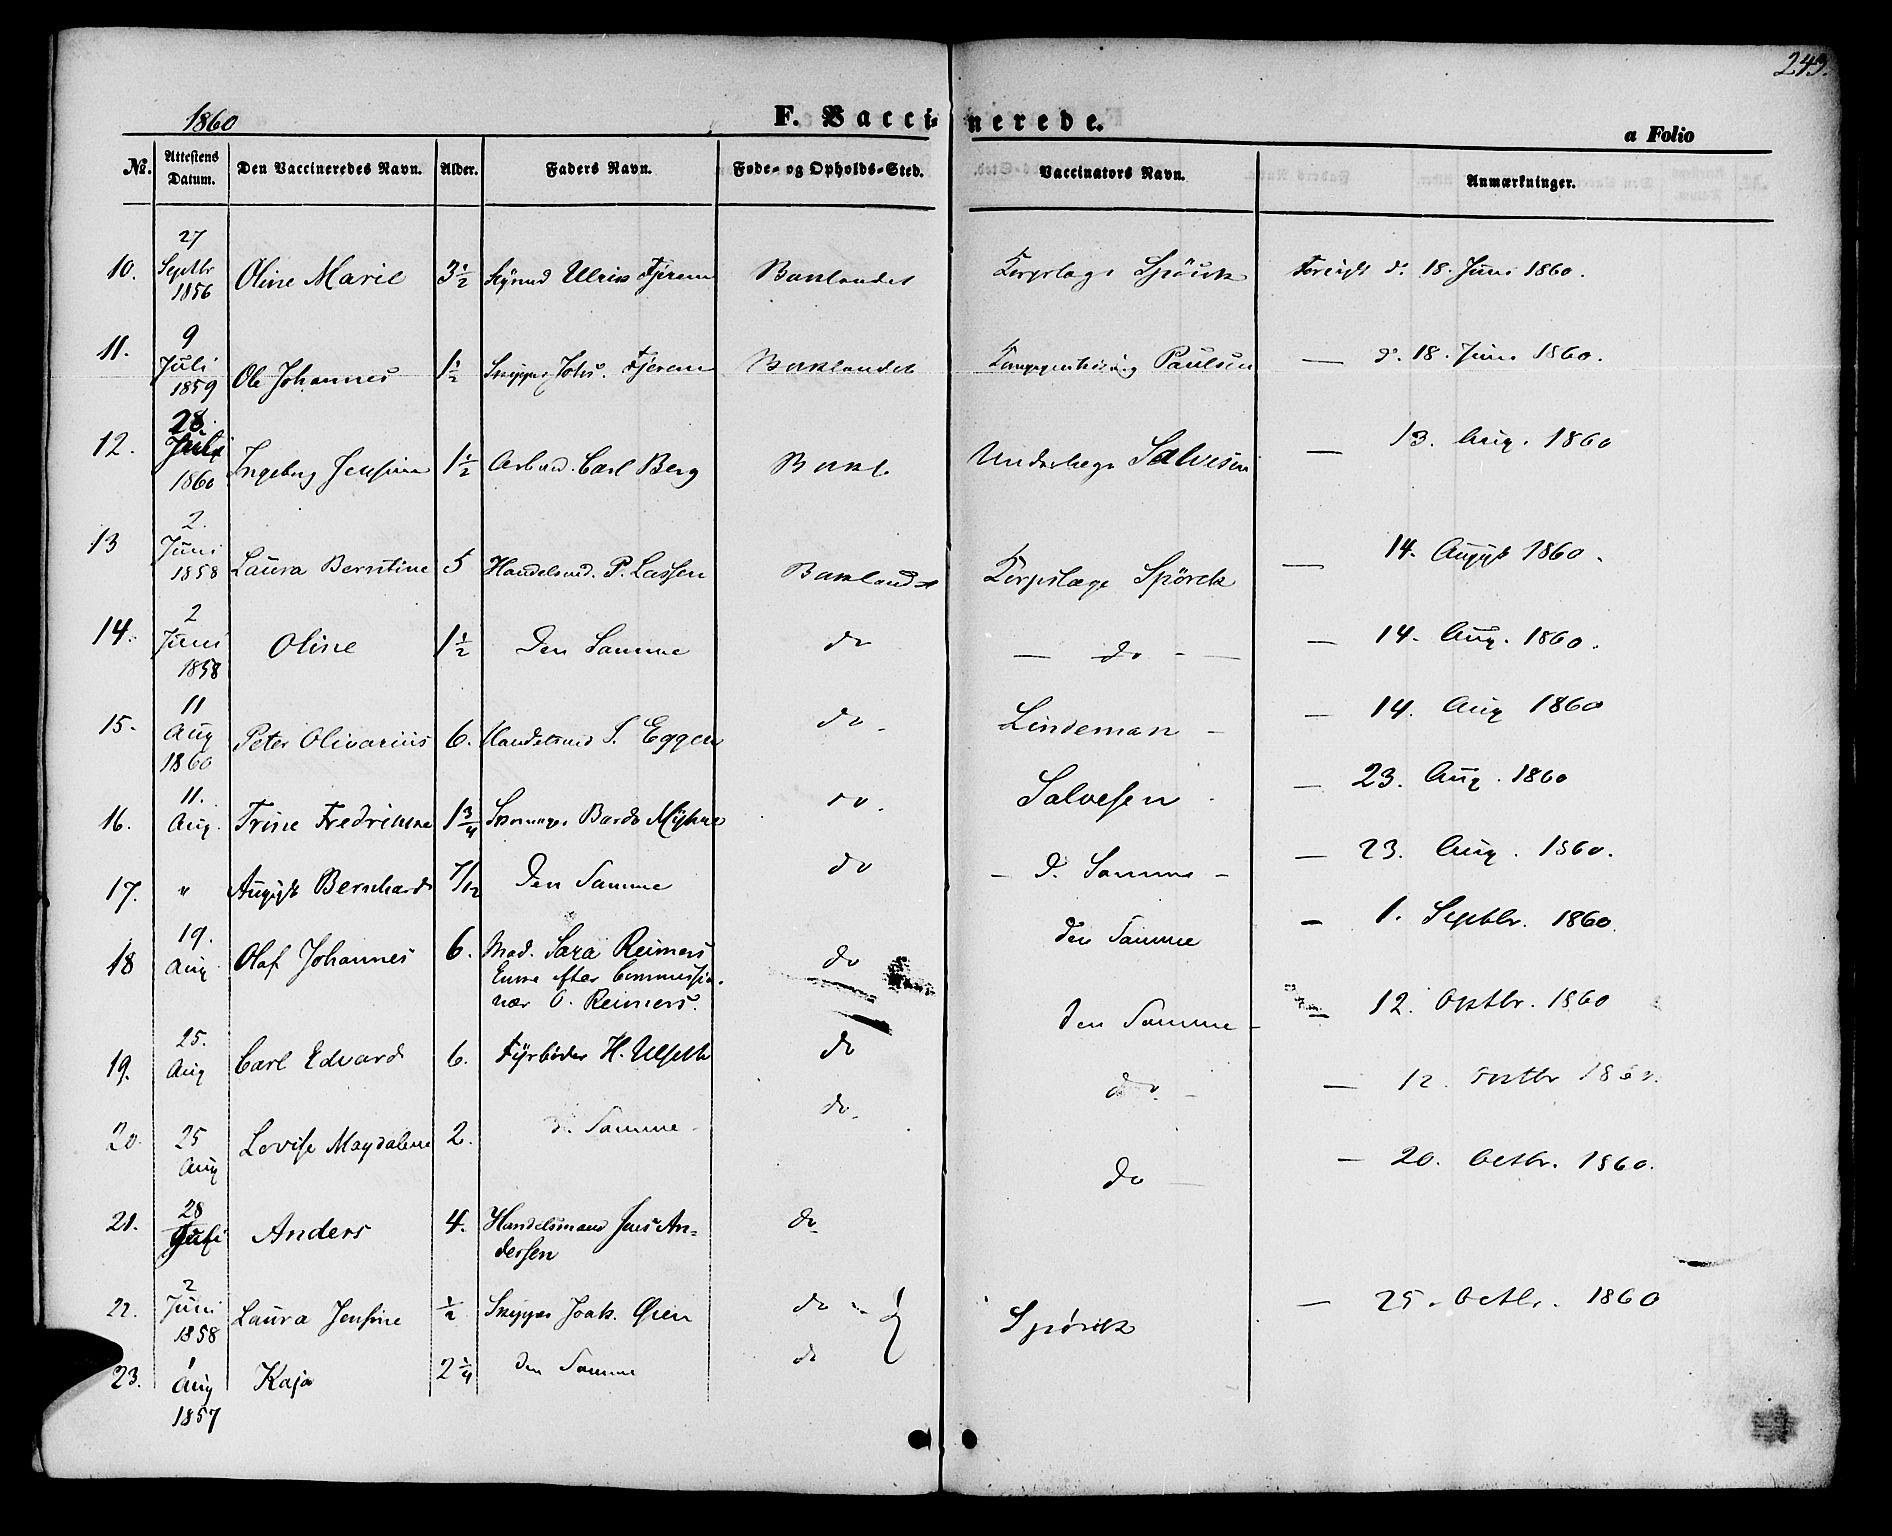 243.
1860
F. Vaccinerede.
a Folio
No. Attestens Datum. Den Vaccineredes Navn. Alder. Faders Navn. Føde- og Opholds-Sted. Vaccinators Navn. Anmærkninger.
10. 27 Septbr 1856 Oline Marie 3 1/2 Ulrik Fjerem Baklandet Korpslæge Spörck Foreviist d. 18. Juni 1860.
11. 9 Juli 1859 Ole Johannes 1 1/2 Skipper Johs. Fjerem Baklandet Paulsen — d. 18. Juni 1860.
12. 28. Juli 1860 Ingeborg Jensine 1 1/2 Arbmd. Carl Berg Bakl. Underlæge Salvesen — 13. Aug. 1860
13 2. Juni 1858 Laura Berntine 5 Handelsmd. P. Lassen Baklandet Korpslæge Spörck — 14. August 1860.
14. 2 Juni 1858 Oline 1 1/2 Den Samme do — do — — 14. Aug. 1860.
15. 11 Aug 1860 Peter Olivarius 6. Handelsmd S. Eggen do Lindeman — — 14. Aug 1860
16. 11. Aug. Trine Fredrikke 1 3/4 Bardo Myhre do. Salvesen — 23. Aug. 1860
17. " August Bernhard 7/12 Den Samme do — D. Samme — — 23. Aug. 1860.
18 19. Aug Olaf Johannes 6. Mad. Sara Reimers do den Samme — 1. Septbr. 1860.
Enke efter Commissio-
nær O. Reimers.
19. 25. Aug Carl Edvard 6. Fyrbøder H. Ulseth do den Samme — — 12. Septbr. 1860
20. 25 Aug Lovise Magdalene 2. d. Samme do. do. — — 12. Septbr 1860.
21. 28 Juli Anders 4. Handelsmand Jens An- do. do — — 20. Octbr. 1860.
dersen
22. 2 Juni 1858 Laura Jensine 1/2 Skipper Joak. Øien do Spörck — 25. Octbr. 1860
23. 1 Aug 1857 Kaja 2 1/4 den Samme do